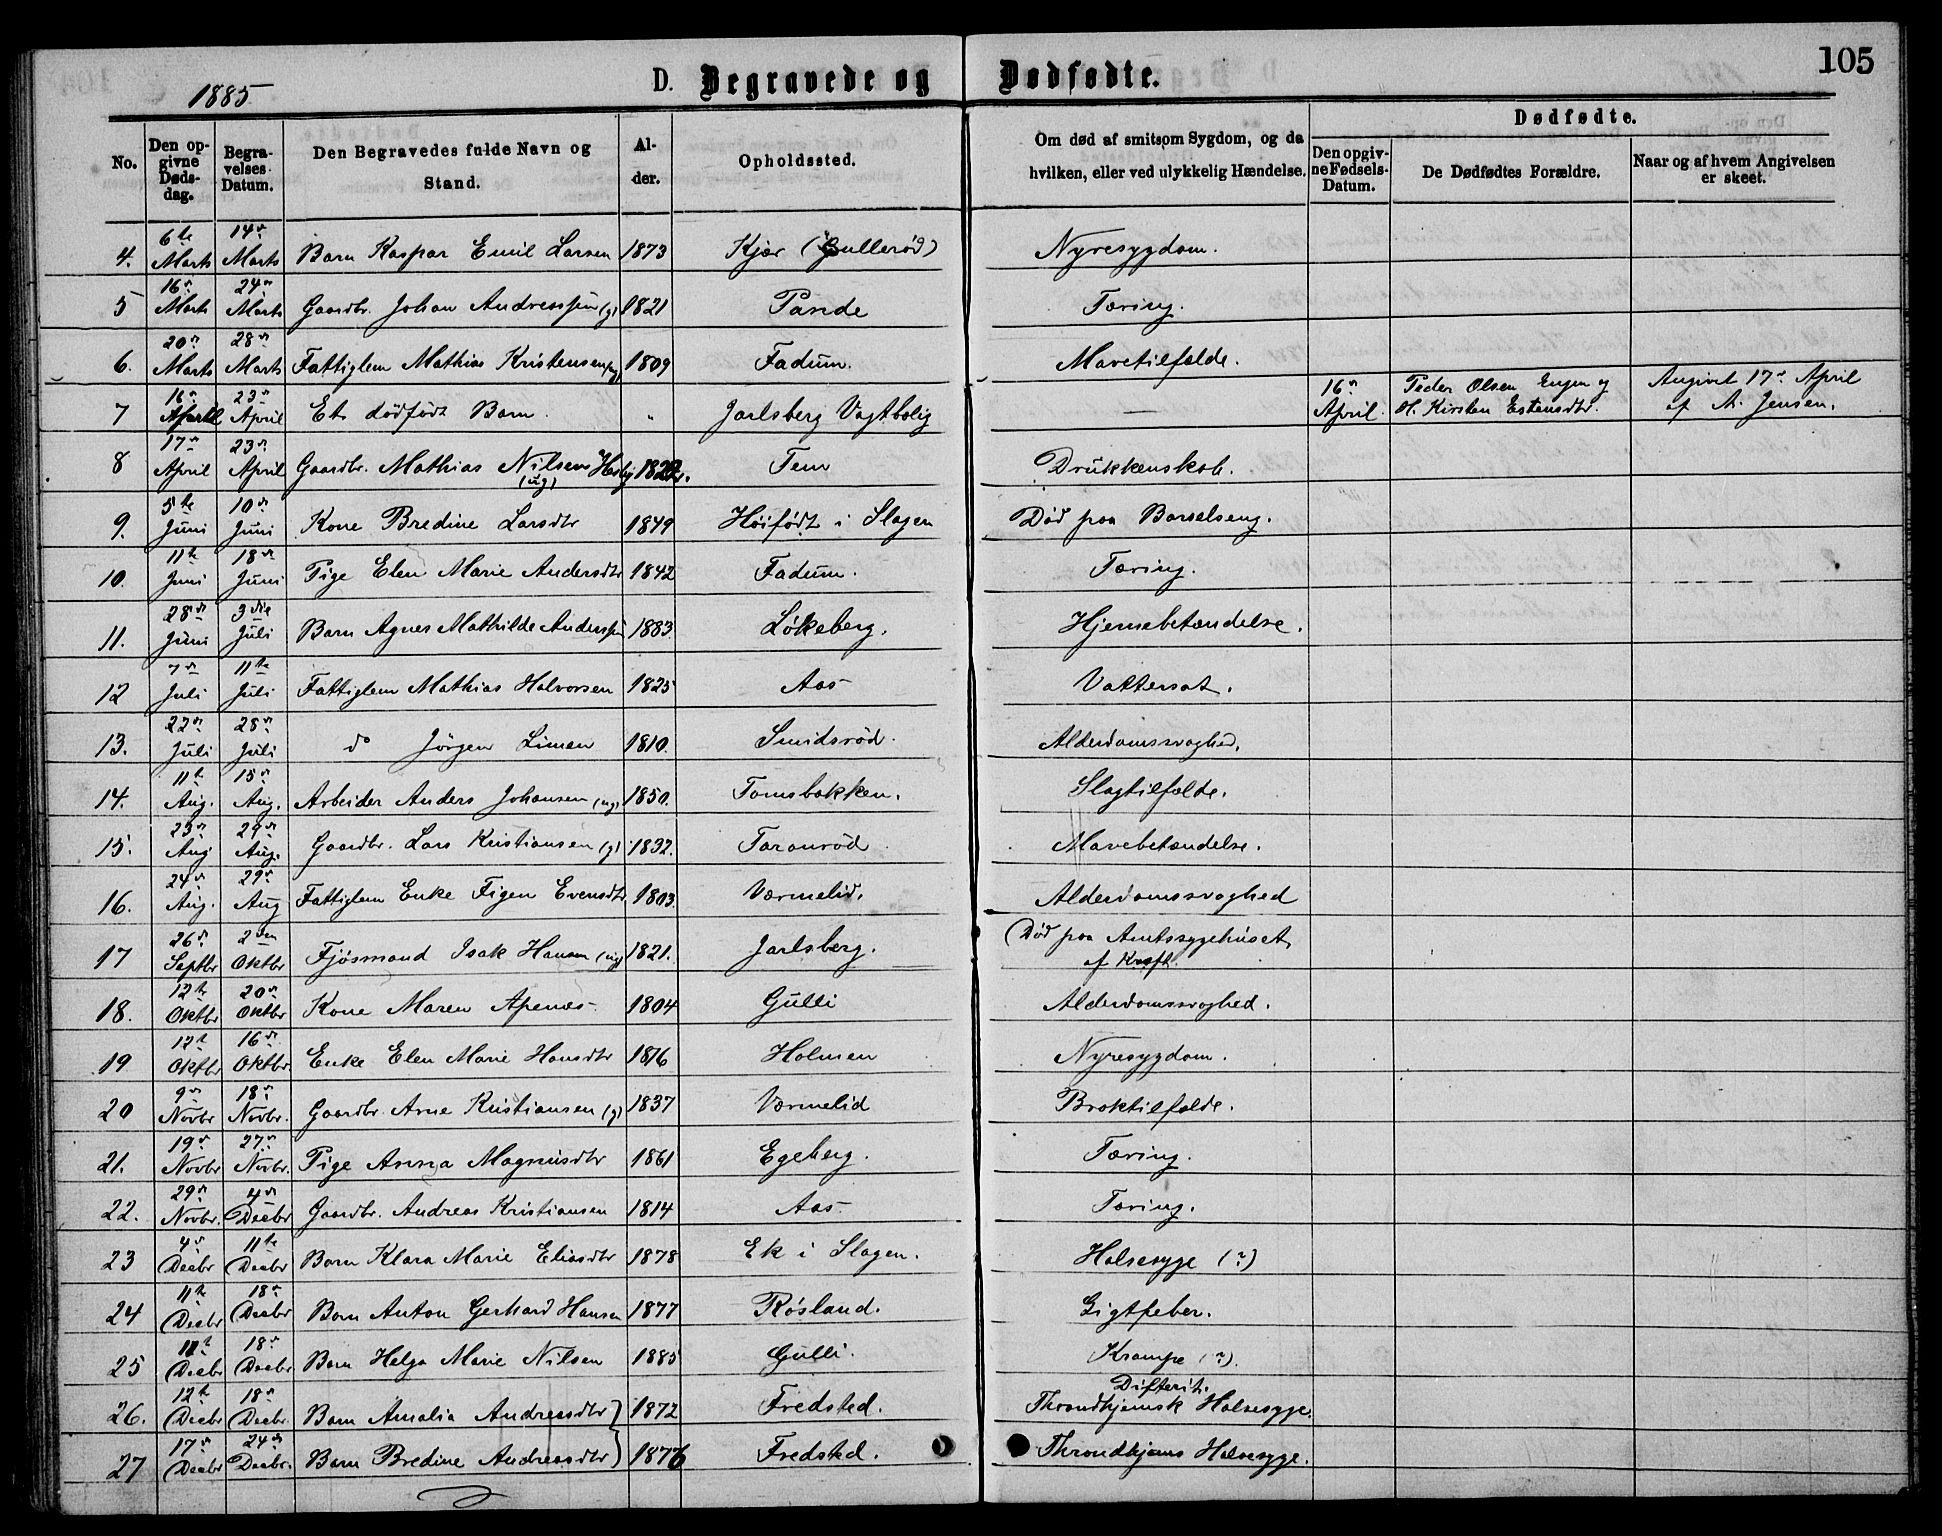 105
1885
D. Begravede og Dødfødte.
No.
Den opgivne Dødsdag.
Begravelses Datum.
Den Begravedes fulde Navn og Stand.
Alder.
Opholdssted.
Om død af smitsom Sygdom, og da hvilken, eller ved ulykkelig Hændelse.
Dødfødte.
Den opgivne Fødsels-Datum.
De Dødfødtes Forældre.
Naar og af hvem Angivelsen er skeet.
4. 6te Marts 14de Marts Barn Kaspar Emil Larsen 1873 Kjær (Gullerød) Nyresygdom.
5 16de Marts 24de Marts Gaardbr. Johan Andreassen (g) 1821 Pande Tæring.
6. 20de Marts 28de Marts Fattiglem Mathias Kristensen (ug) 1809 Fadum. Mavetilfælde.
7 16de April 23de April Et dødfødt Barn. " Jarlsberg Vagtbolig — 16de April. Peder Olsen Engen og H. Kirsten Estensdtr. Angivet 17de April af A. Jensen.
8 17de April 23de April Gaardbr. Mathias Nilsen Hesby (ug) 1822. Tem Drukkenskab.
9. 5te Juni 10de Juni Kone Bredine Larsdtr 1849 Høifødt i Slagen Død paa Barselseng.
10. 11te Juni 18de Juni Pige Elen Marie Andersdtr 1842 Fadum. Tæring.
11. 28de Juni 3die Juli Barn Agnes Mathilde Anderssen 1883. Løkeberg. Hjernebetændelse.
12 7de Juli 11te Juli Fattiglem Mathias Halvorsen 1825 Aas Vattersot.
13. 22de Juli 28de Juli do Jørgen Limen 1810. Smidsrød. Alderdomssvaghed.
14. 11te Aug. 15de Aug. Arbeider Anders Johansen (ug) 1850. Tomsbakken. Slagtilfælde.
15. 23de Aug 29de Aug. Gaardbr. Lars Kristiansen (g) 1832. Taranrød Mavebetændelse.
16. 24de Aug. 29de Aug Fattiglem Enke Figen Evensdtr 1803. Værmelid. Alderdomssvaghed
17 26de Septbr 2den Oktbr Fjøsmand Isak Hansen (ug) 1821. Jarlsberg. (Død paa Amtssygehuset af Kræft.
18. 12te Oktbr 20de Oktbr Kone Maren Apenæs 1804 Gulli Alderdomssvaghed.
19 12te Oktbr 16de Oktbr. Enke Elen Marie Hansdtr 1816 Holmen Nyresygdom.
20 9de Novbr 18de Novbr. Gaardbr. Arne Kristiansen (g) 1837 Værmelid Broktilfælde.
21. 19de Novbr 27de Novbr. Pige Anna Magnusdtr 1861 Egeberg. Tæring.
22. 29de Novbr. 4de Decbr Gaardbr. Andreas Kristiansen 1814 Aas. Tæring.
23 4de Decbr 11te Decbr Barn Klara Marie Eliasdtr 1878 Ek i Slagen. Halsesyge (?)
24 11te Decbr 18de Decbr Barn Anton Gerhard Hansen 1877 Røsland. Gigtfeber.
25 11te Decbr 18de Decbr Barn Helga Marie Nilsen 1885 Gulli. Krampe (?).
26. 12te Decbr 18de Decbr. Barn Amalia Andreasdtr 1872 Fredsted. Difterit. Throndhjemsk Halsesyge.
27 17de Decbr 24de Decbr. Barn Bredine Andreasdtr 1876 Fredsted. Throndhjems Halsesyge.